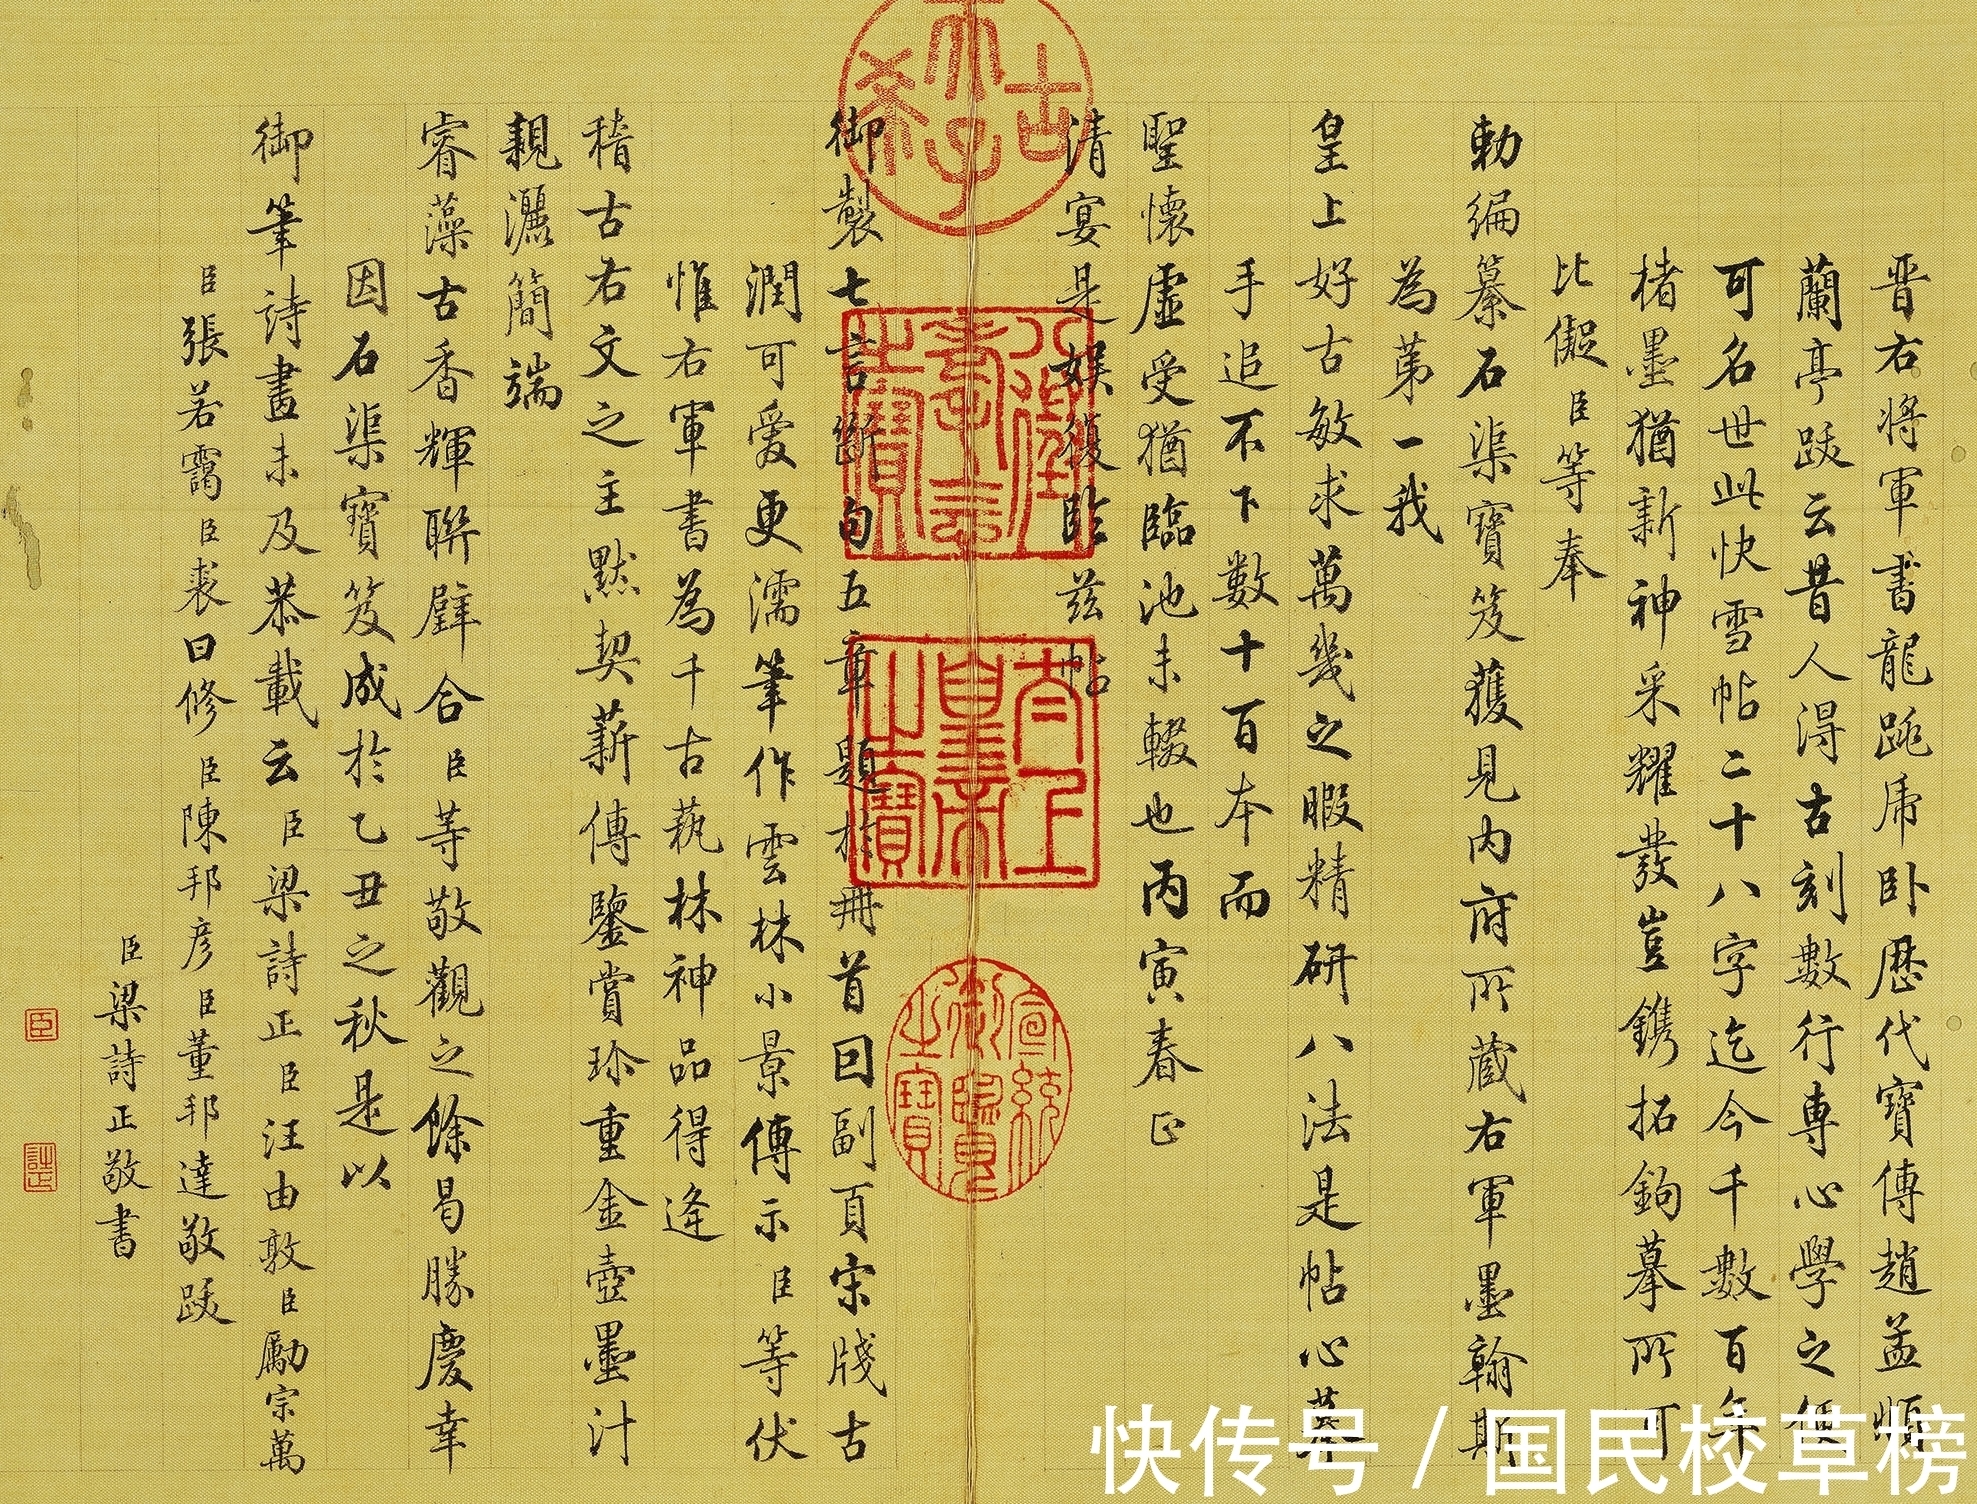 晋右將軍書龍跳虎卧歷代寶傳趙孟頫
蘭亭跋云昔人得古刻數行專心學之便
可名世此快雪帖二十八字迄今千數百年
楮墨猶新神采耀發豈鐫拓鉤摹所可
比儗臣等奉
勅編纂石渠寶笈獲見內府所藏右軍墨翰斯
為第一我
皇上好古敏求萬幾之暇精研八法是帖心摹
手追不下數十百本而
聖懷虛受猶臨池未輟也丙寅春正
清宴是娛復臨茲帖
御製七言斷句五章題於冊首曰副頁宋牋古
潤可愛更濡筆作雲林小景傳示臣等伏
惟右軍書為千古蓺林神品得逢
稽古右文之主默契薪傳鑒賞珍重金壺墨汁
親灑簡端
睿藻古香輝聯壁合臣等敬觀之餘曷勝慶幸
因石渠寶笈成於乙丑之秋是以
御筆詩畫未及恭載云臣梁詩正臣汪由敦臣勵宗萬
臣張若靄臣裘曰修臣陳邦彥臣董邦達敬跋
臣梁詩正敬書
古希天子
八徵耄念之寶
太上皇帝之寶
宣統御覽之寶
臣
快传号/国民校草榜